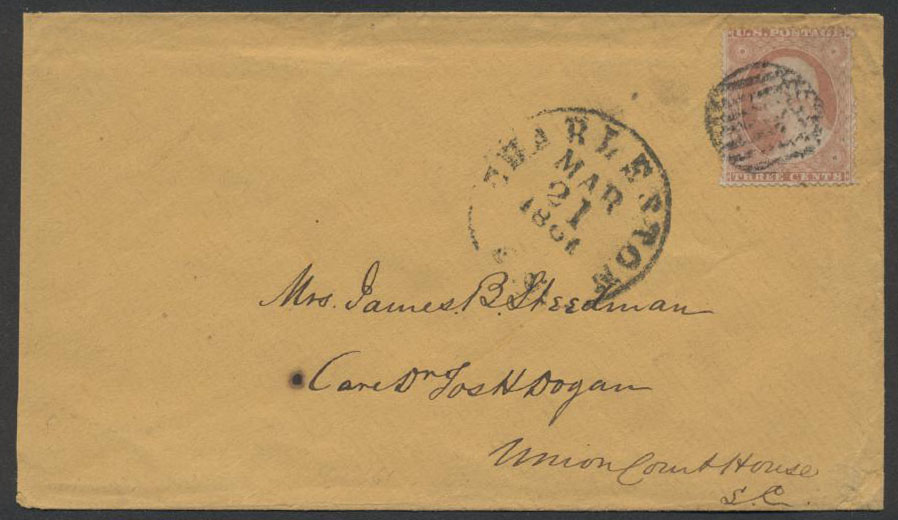 U.S. POSTAGE
THREE CENTS
CHARLESTON
MAR
21
1861
Mrs. James. B. Steedman
Care Dr Jos H Dogan
Union Court House
S.C.